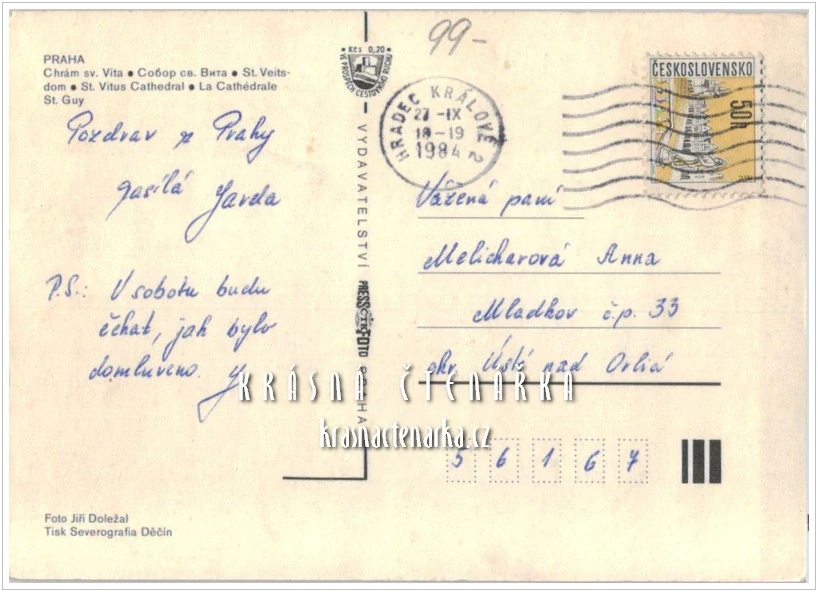 PRAHA
Chrám sv. Víta ● Собор св. Вита ● St. Veits-
dom ● St. Vitus Cathedral ● La Cathédrale
St. Guy
Pozdrav z Prahy
zasílá Jarda
P.S.: V sobotu budu
čekat, jak bylo
domluveno. J
Foto Jiří Doležal
Tisk Severografia Děčín
Kčs 0,20
VE PROSPĚCH CESTOVNÍHO RUCHU
VYDAVATELSTVÍ PRESSFOTO PRAHA
99-
HRADEC KRÁLOVÉ 2
27 -IX
18-19
1984
ČESKOSLOVENSKO
50h
Vážená paní
Melicharová Anna
Mladkov č.p. 33
okr. Ústí nad Orlicí
56167
KRÁSNÁ ČTENÁŘKA
krasnactenarka.cz